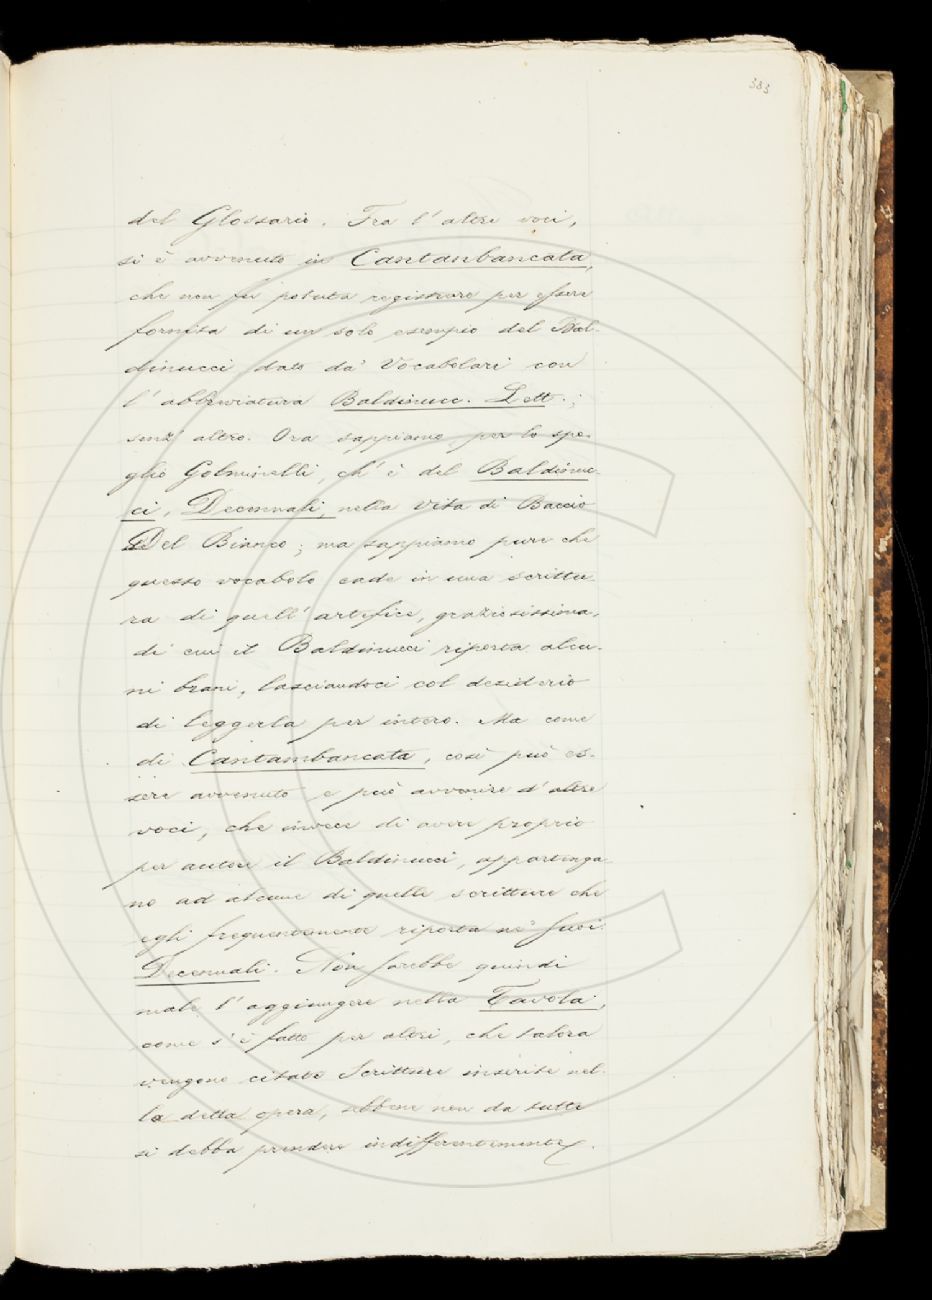 585
del Glossario. Fra l'altre voci,
si è avvenuto in Cantanbancata,
che non fu potuta registrare per essere
fornita di un solo esempio del Bal-
dinucci dato da' Vocabolari con
l'abbreviatura Baldinucc. Lett.;
senz'altro. Ora sappiamo per lo spo-
glio Gelminelli, ch'è del Baldinuc-
ci, Decennali, nella Vita di Baccio
Del Bianco; ma sappiamo pure che
questo vocabolo cade in una scrittu-
ra di quell'artefice, graziosissima,
di cui il Baldinucci riporta alcu-
ni brani, lasciandoci col desiderio
di leggerla per intero. Ma come
di Cantambancata, così può es-
sere avvenuto e può avvenire d'altre
voci, che invece di avere proprio
per autore il Baldinucci, appartenga-
no ad alcune di quelle scritture che
egli frequentemente riporta ne' suoi
Decennali. Non sarebbe quindi
male l'aggiungere nella Tavola,
come s'è fatto per altri, che talora
vengono citate Scritture inserite nel-
la detta opera, sebbene non da tutte
si debba prendere indifferentemente.